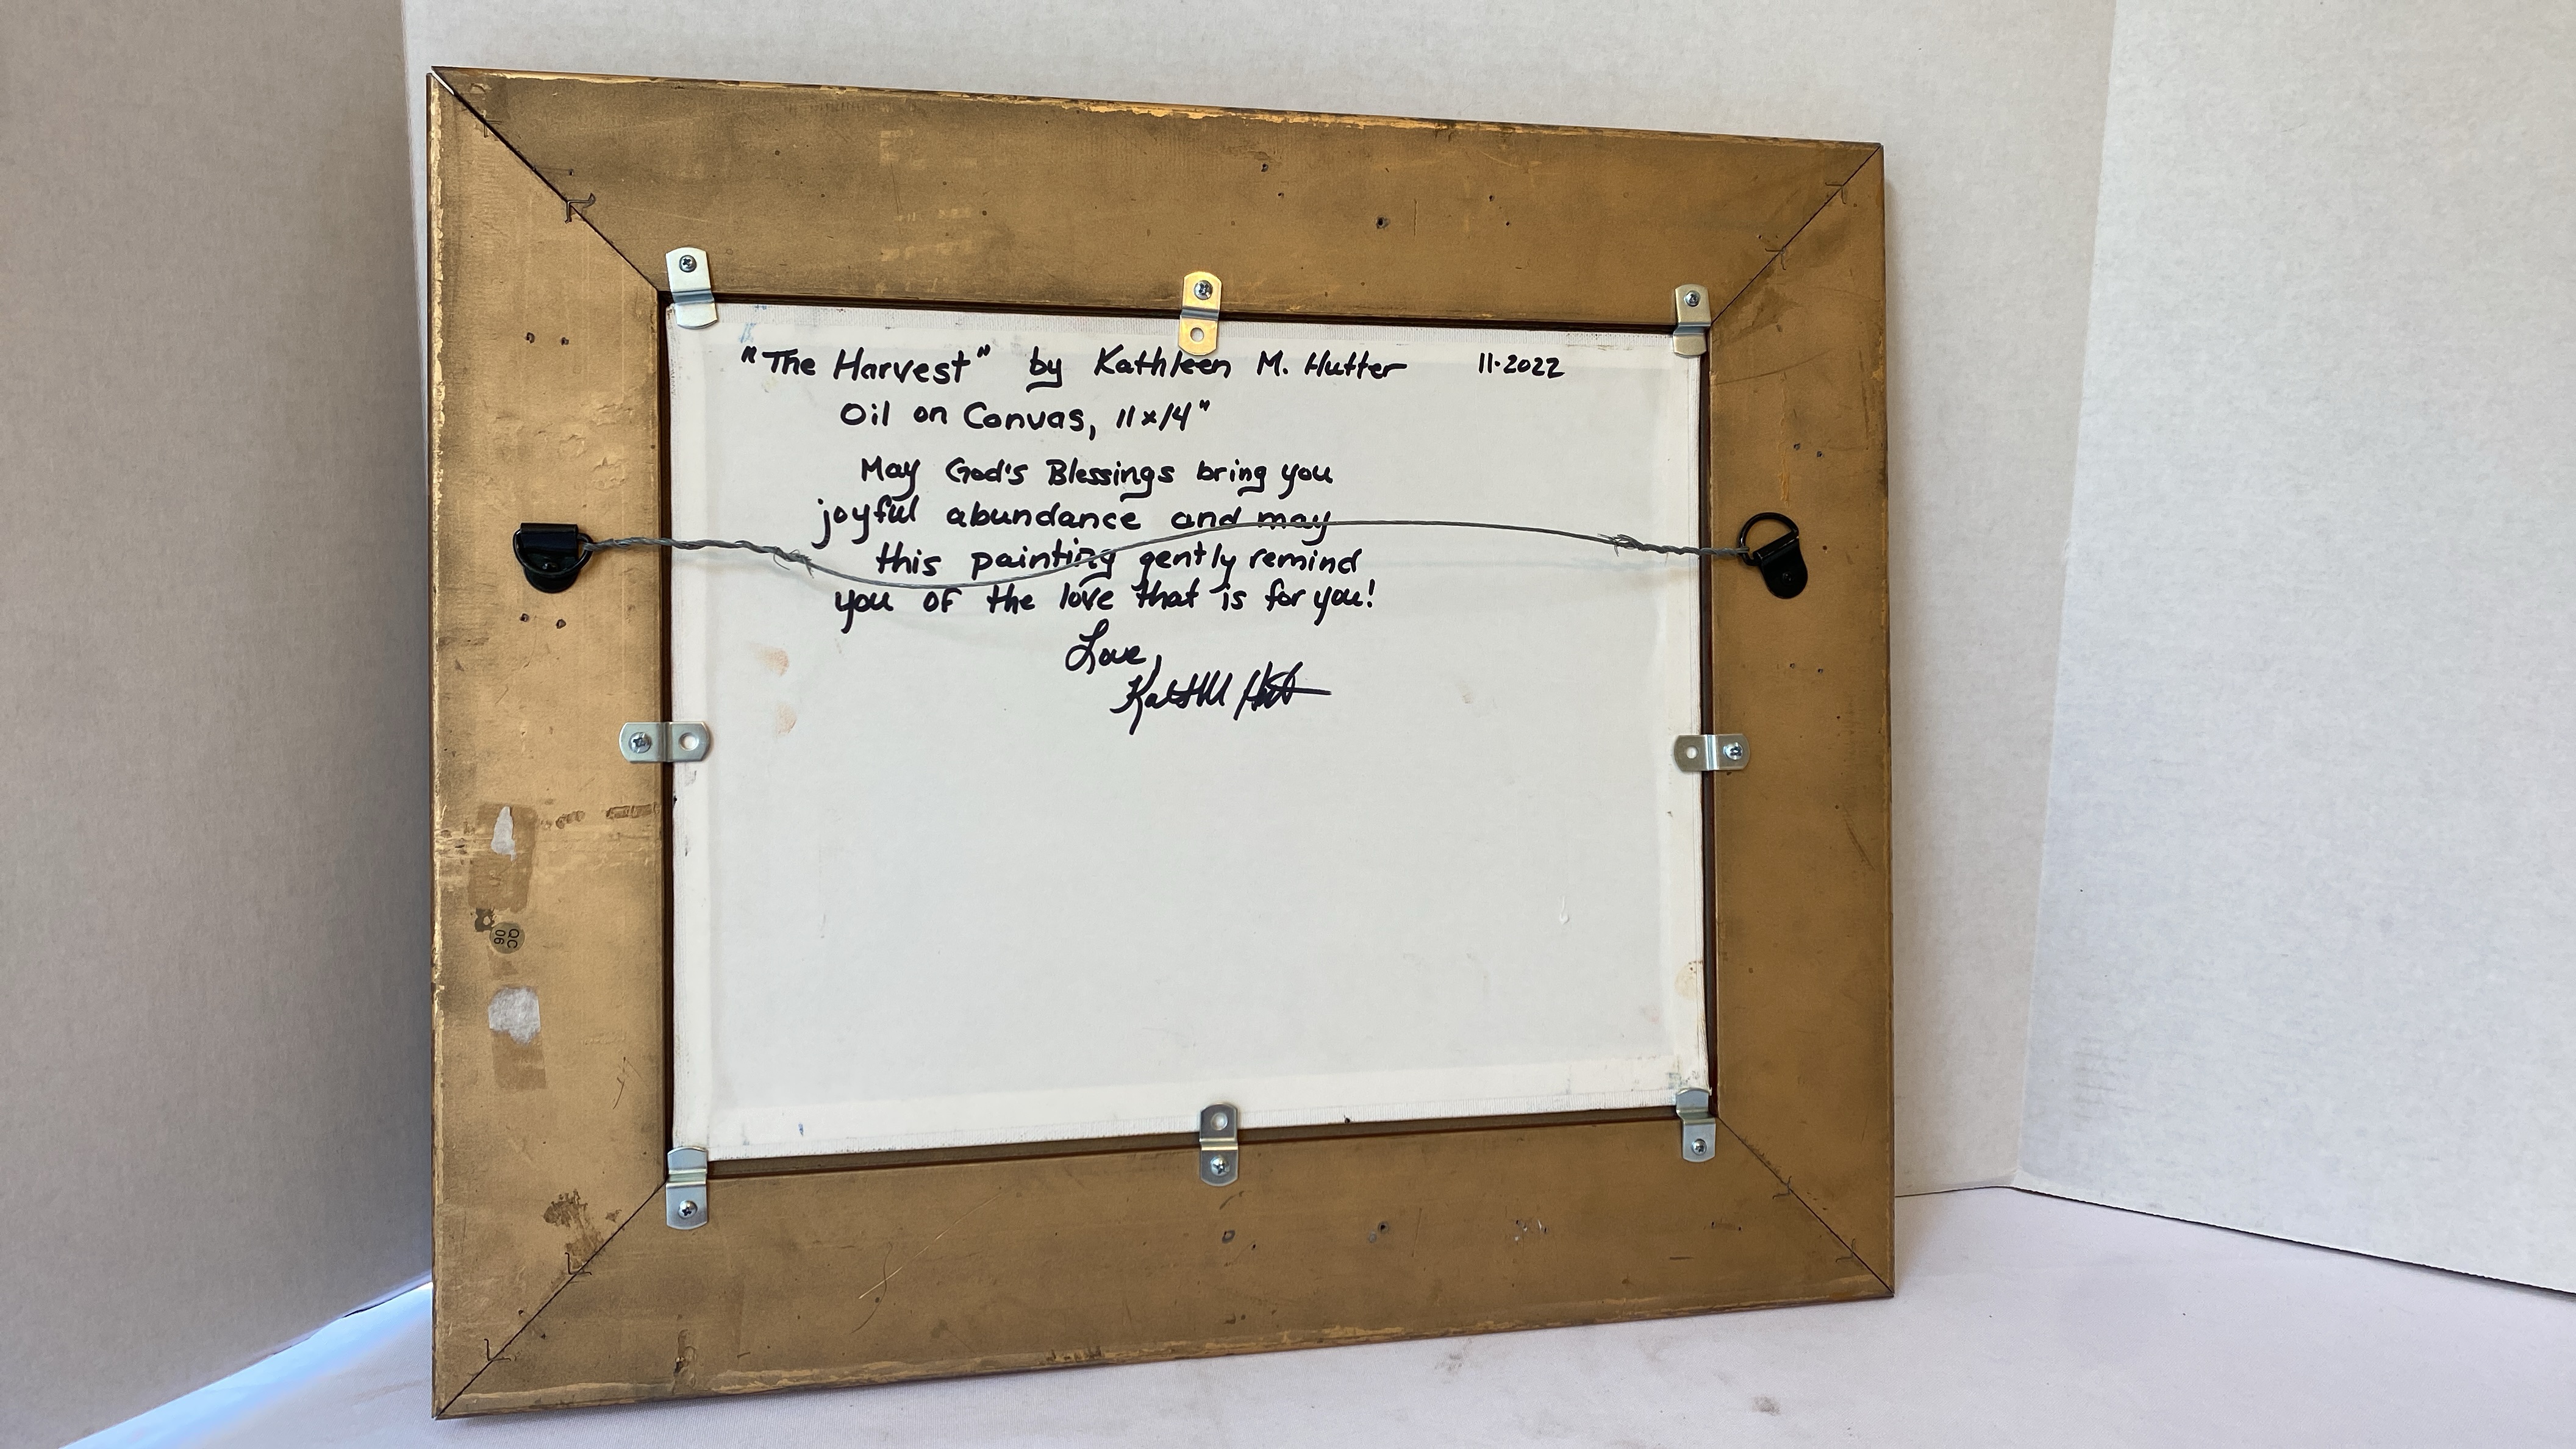 "The Harvest" by Kathleen M. Hutter 11·2022
Oil on Canvas, 11x14"
May God's Blessings bring you
joyful abundance and may
this painting gently remind
you of the love that is for you!
Love,
QC
06